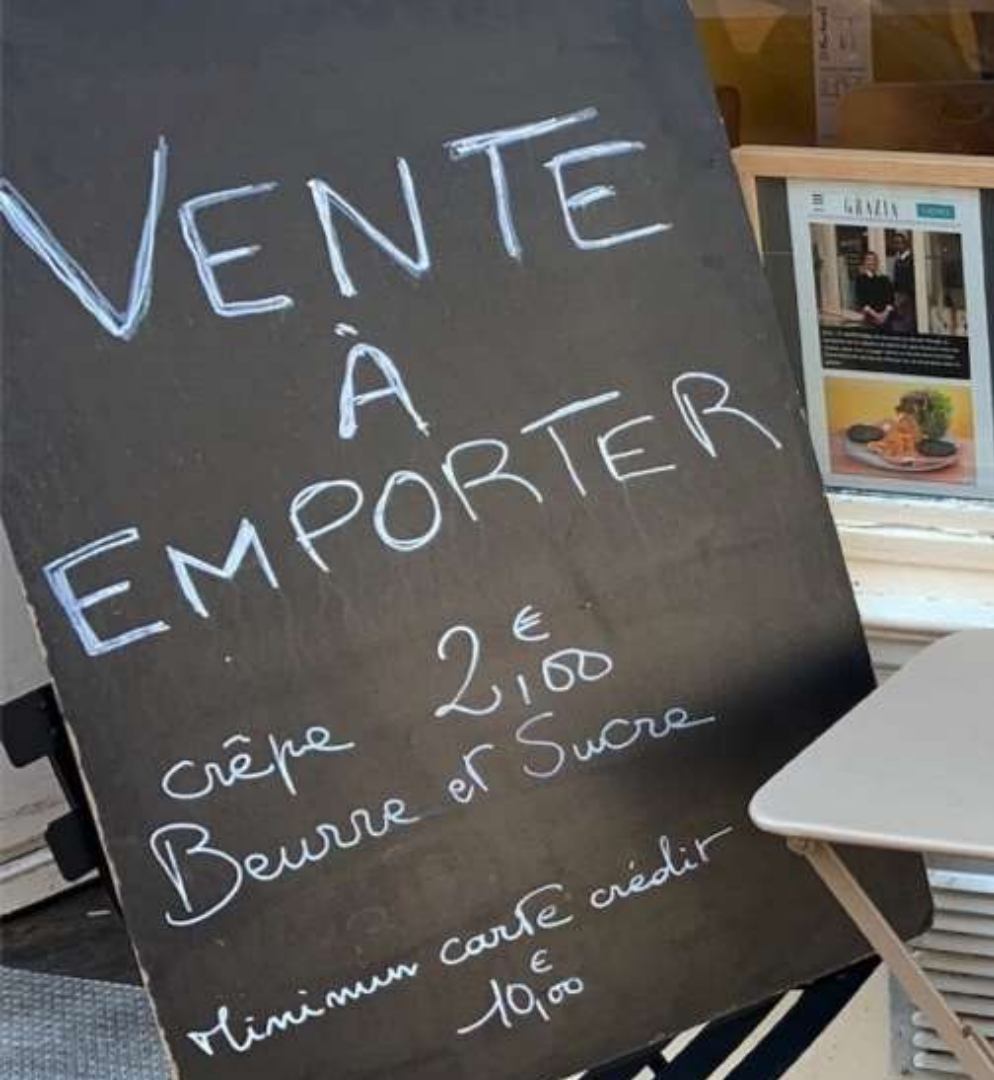 VENTE
À
EMPORTER
crêpe 2,00€
Beurre et Sucre
Minimun carte crédit
10,00€
GRAZIA